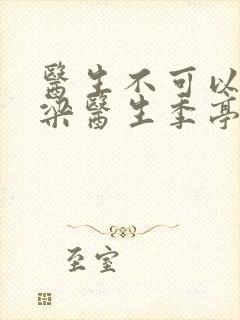 醫生不可以
梁醫生季亭
至室